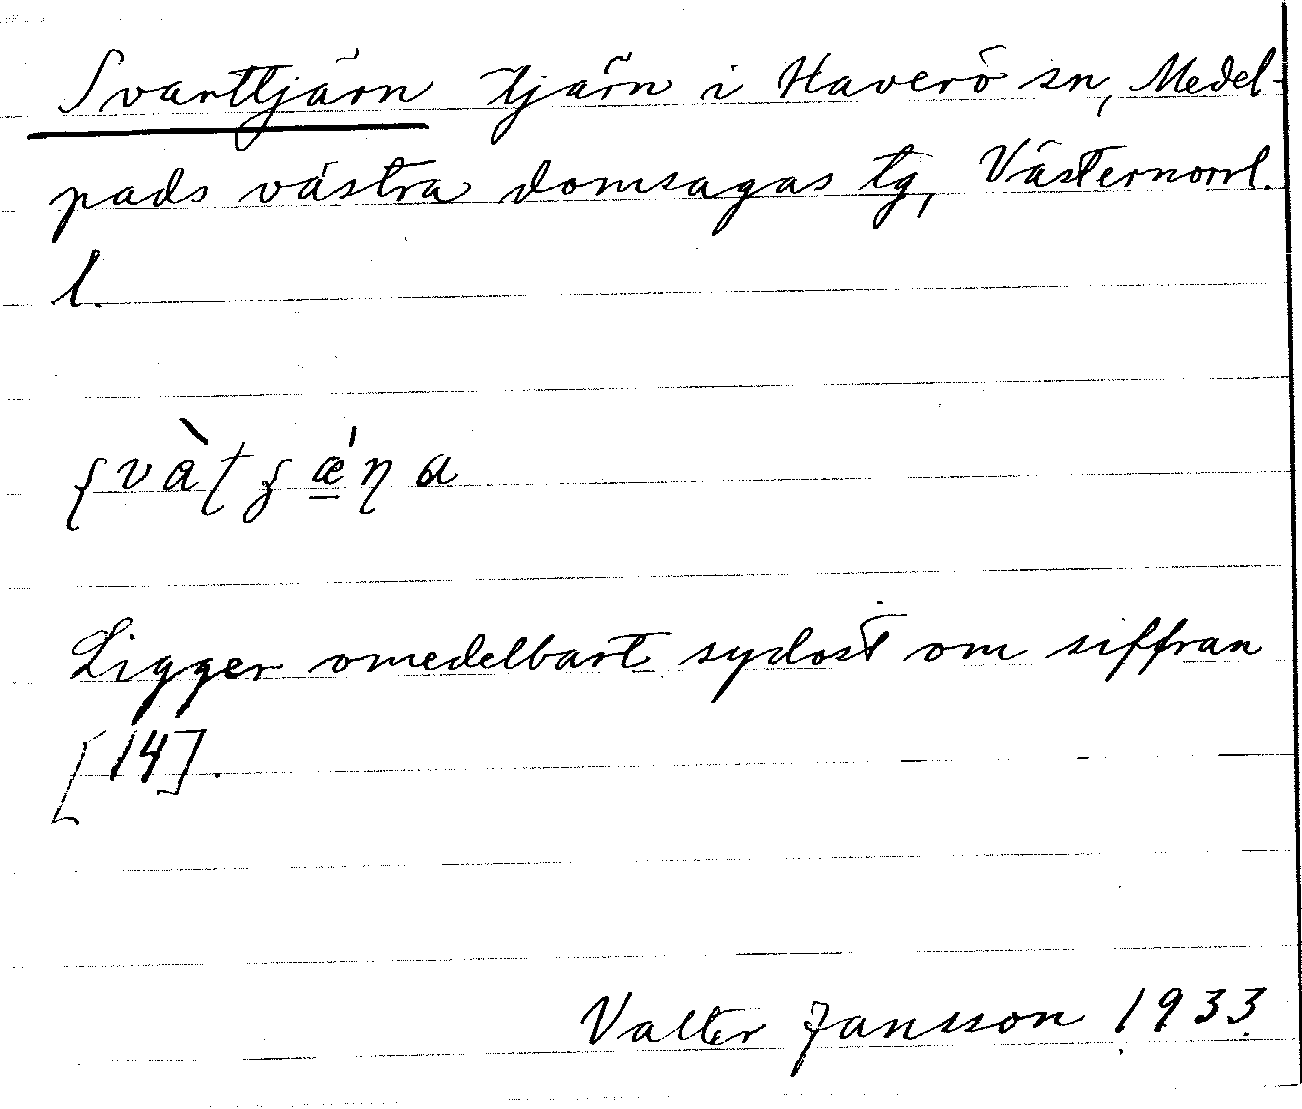 Svarttjärn tjärn i Haverö sn, Medel-
pads västra domsagas tg, Västernorrl.
l.
ʂvàʈʂǽ̱ɳa
Ligger omedelbart sydost om siffran
[14].
Valter Jansson 1933.